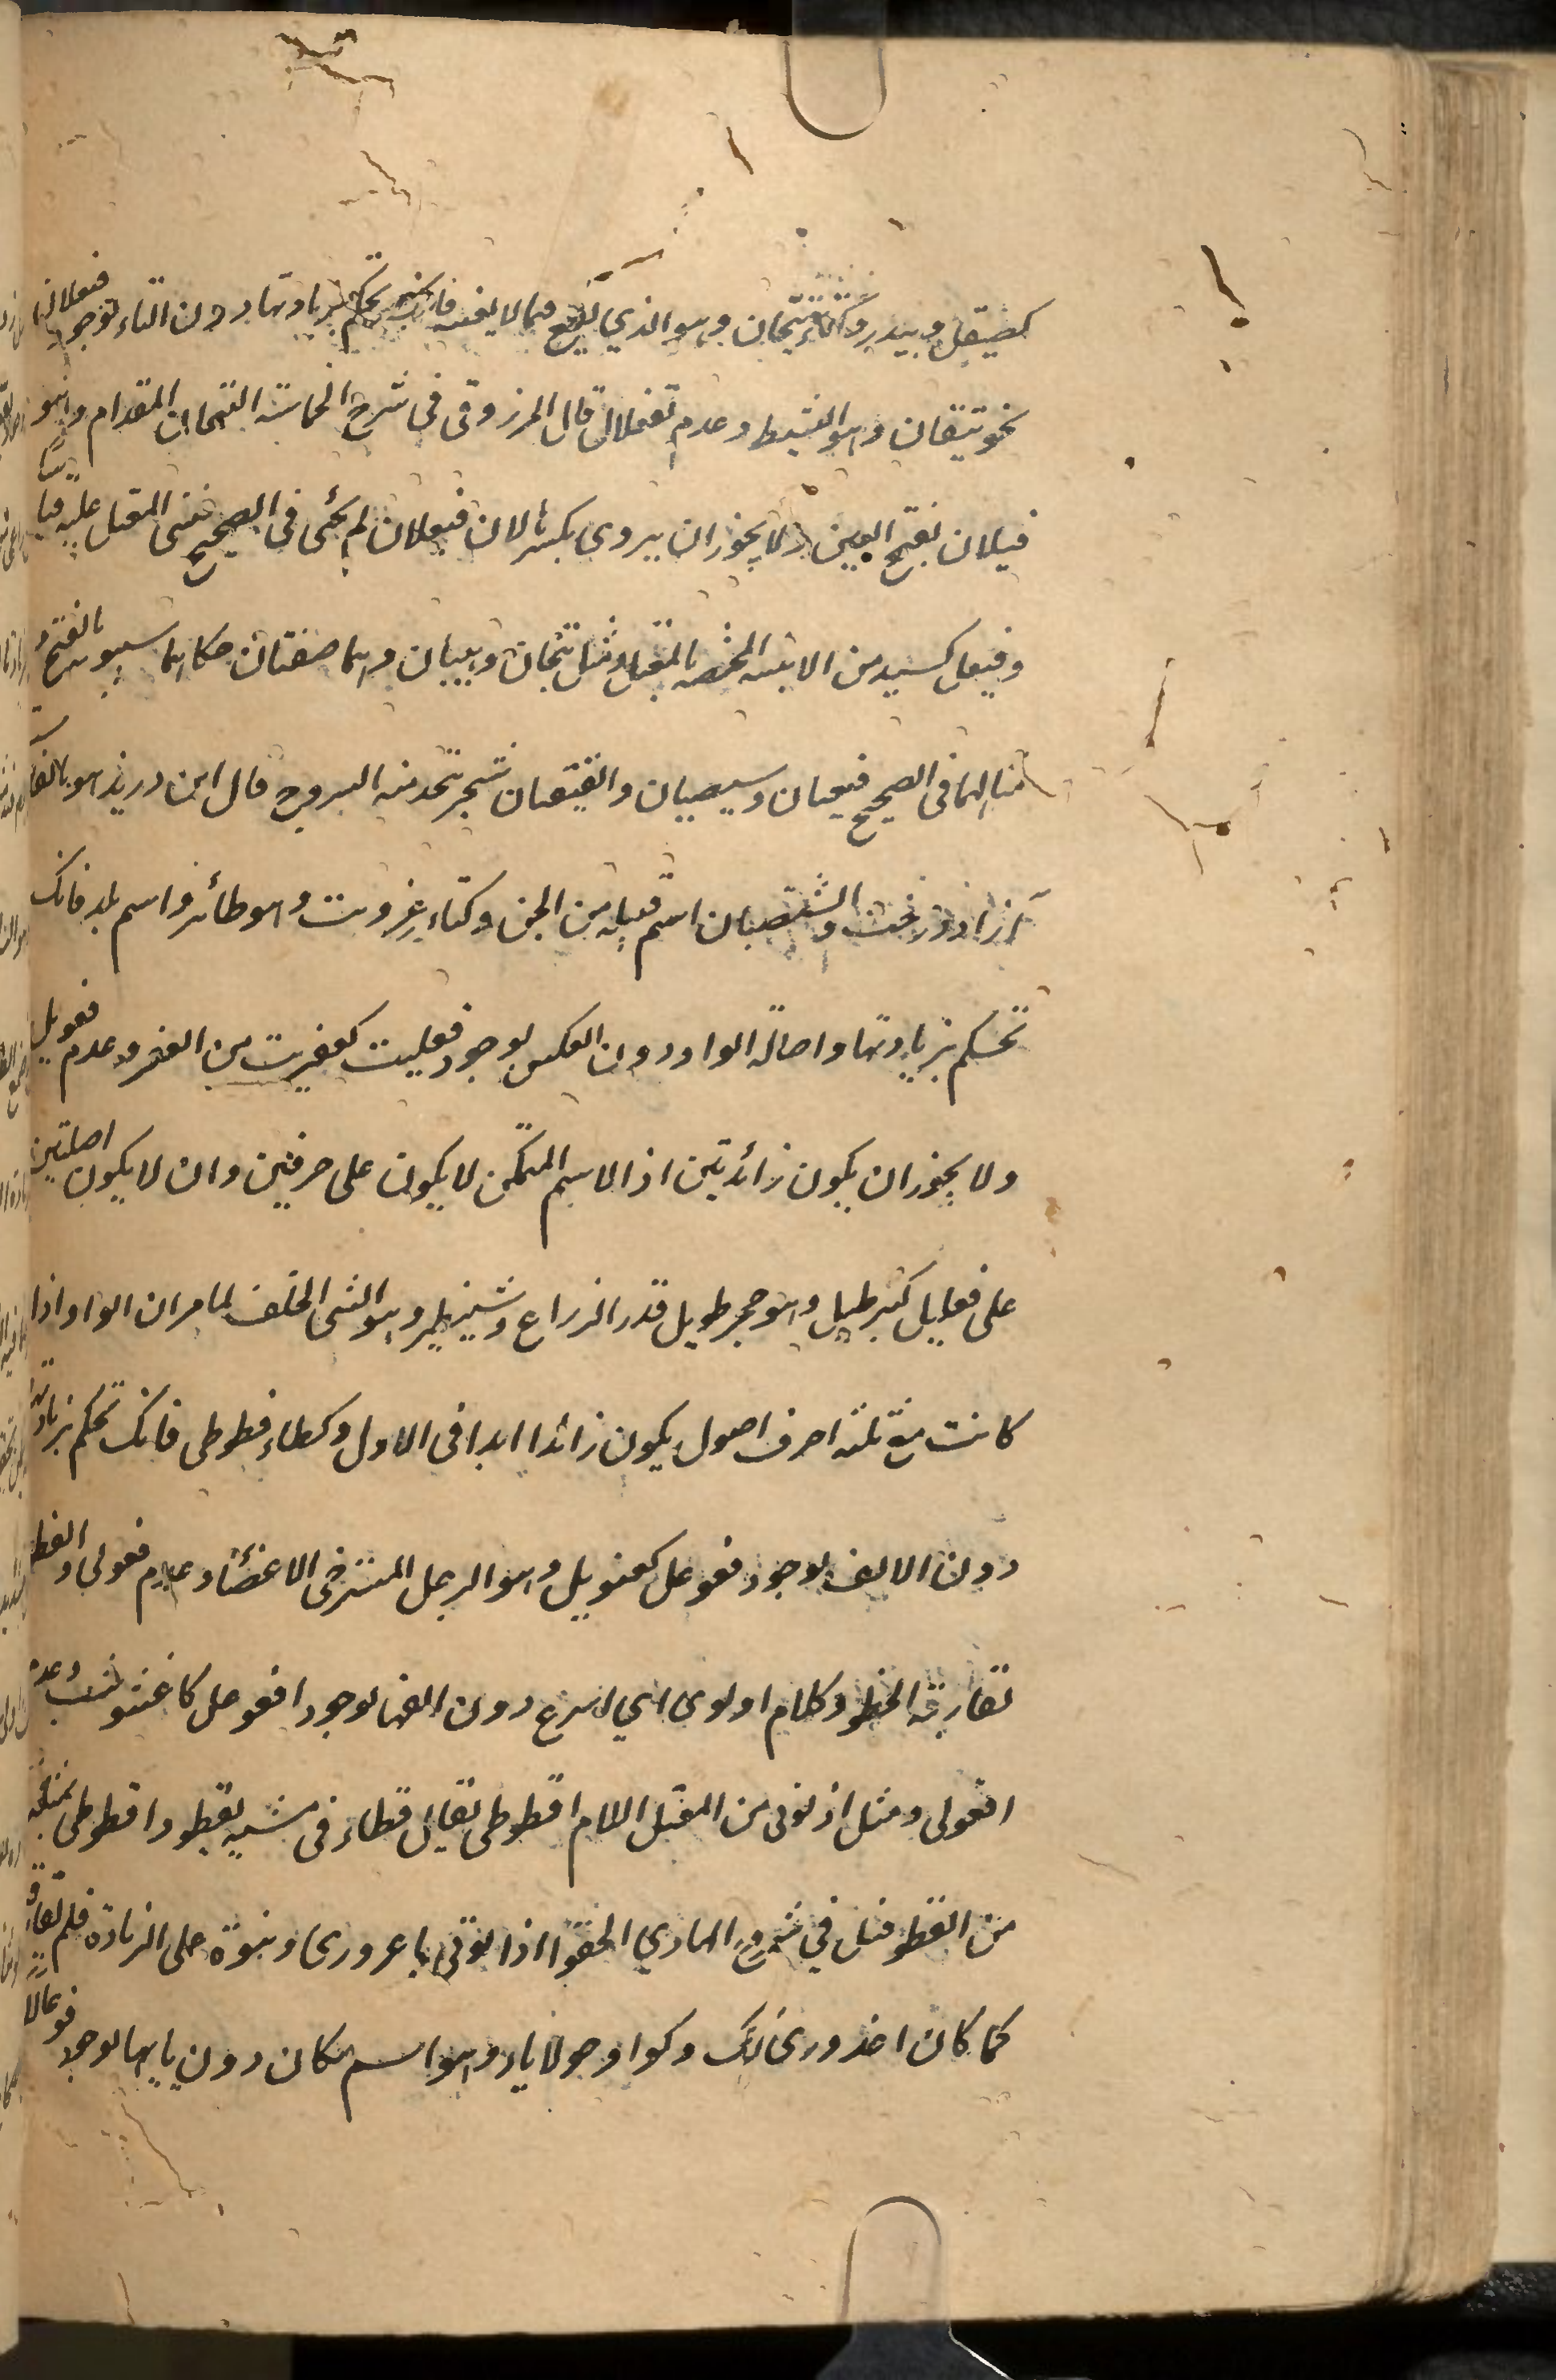 كصيقل وبيدر وكتاء تيحان وهو الذي يقع فيما لا يعنيه فانك تحكم بزيادتها دون التاء لوجود فيعلان
نحو تيقان وهو النشيط وعدم تفعلان قال المرزوقى فى شرح الحماسة التيحان المقدام وهو
فيعلان بفتح العين ولا يجوز ان يروى بكسر لان فيعلان لم يجئ فى الصحيح فيبنى المعتل عليه قياسا
وفيعل كسيد من الابنية المختصة بالمعتل ومثل تيحان وهيبان وهما صفتان حكاهما سيبويه بالفتح و
مثالهما فى الصحيح قيقبان وسيسبان والقيقبان شجر يتخذ منه السروج قال ابن دريد هو بالفارسية
آزاذ درخت والشيصبان اسم قبيلة من الجن وكتاء عزويت وهو طائر واسم بلد فانك
تحكم بزيادتها واصالة الواو دون العكس لوجود فعليت كعفريت من العفر وعدم فعويل
ولا يجوز ان يكون زائدتين اذ الاسم المتمكن لا يكون على حرفين وان لا يكون اصليتين
على فعليل كبرطيل وهو حجر طويل قدر الذراع وشنظير وهو السئ الخلق لما مر ان الواو اذا
كانت مع ثلثة احرف اصول يكون زائدا ابدا فى الاول وكطاء قطوطى فانك تحكم بزيادتها
دون الالف لوجود فعوعل كعثوثل وهو الرجل المسترخى الاعضاء وعدم فعولى والقطو
تقارب الخطو وكلام اذلولى اي اسرع دون الفها لوجود افعوعل كاعشوشب وعدم
افعولى ومثل اذلولى من المعتل اللام اقطوطى يقال قطا فى مشيه يقطو واقطوطى مثله
من القطو قيل في شروح الهادي
كما كان اعرورى كذلك وكواو حولايا وهو اسم مكان دون يائها لوجود فوعالا